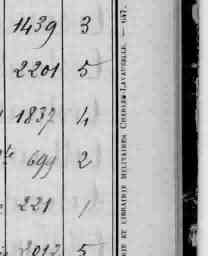 1439 3
2201 5
1837 4
te 699 2
221 1
2012 5
RIE ET LIBRAIRIE MILITAIRES CHARLES-LAVAUZELLE. — 647.